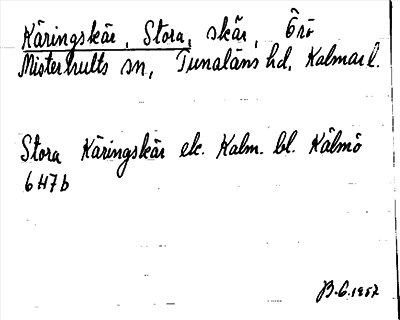 Käringskär, Stora, skär, Örö
Misterhults sn, Tunaläns hd, Kalmar l.
Stora Käringskär ek. Kalm. bl. Kälmö
6H7b
B.G. 1957